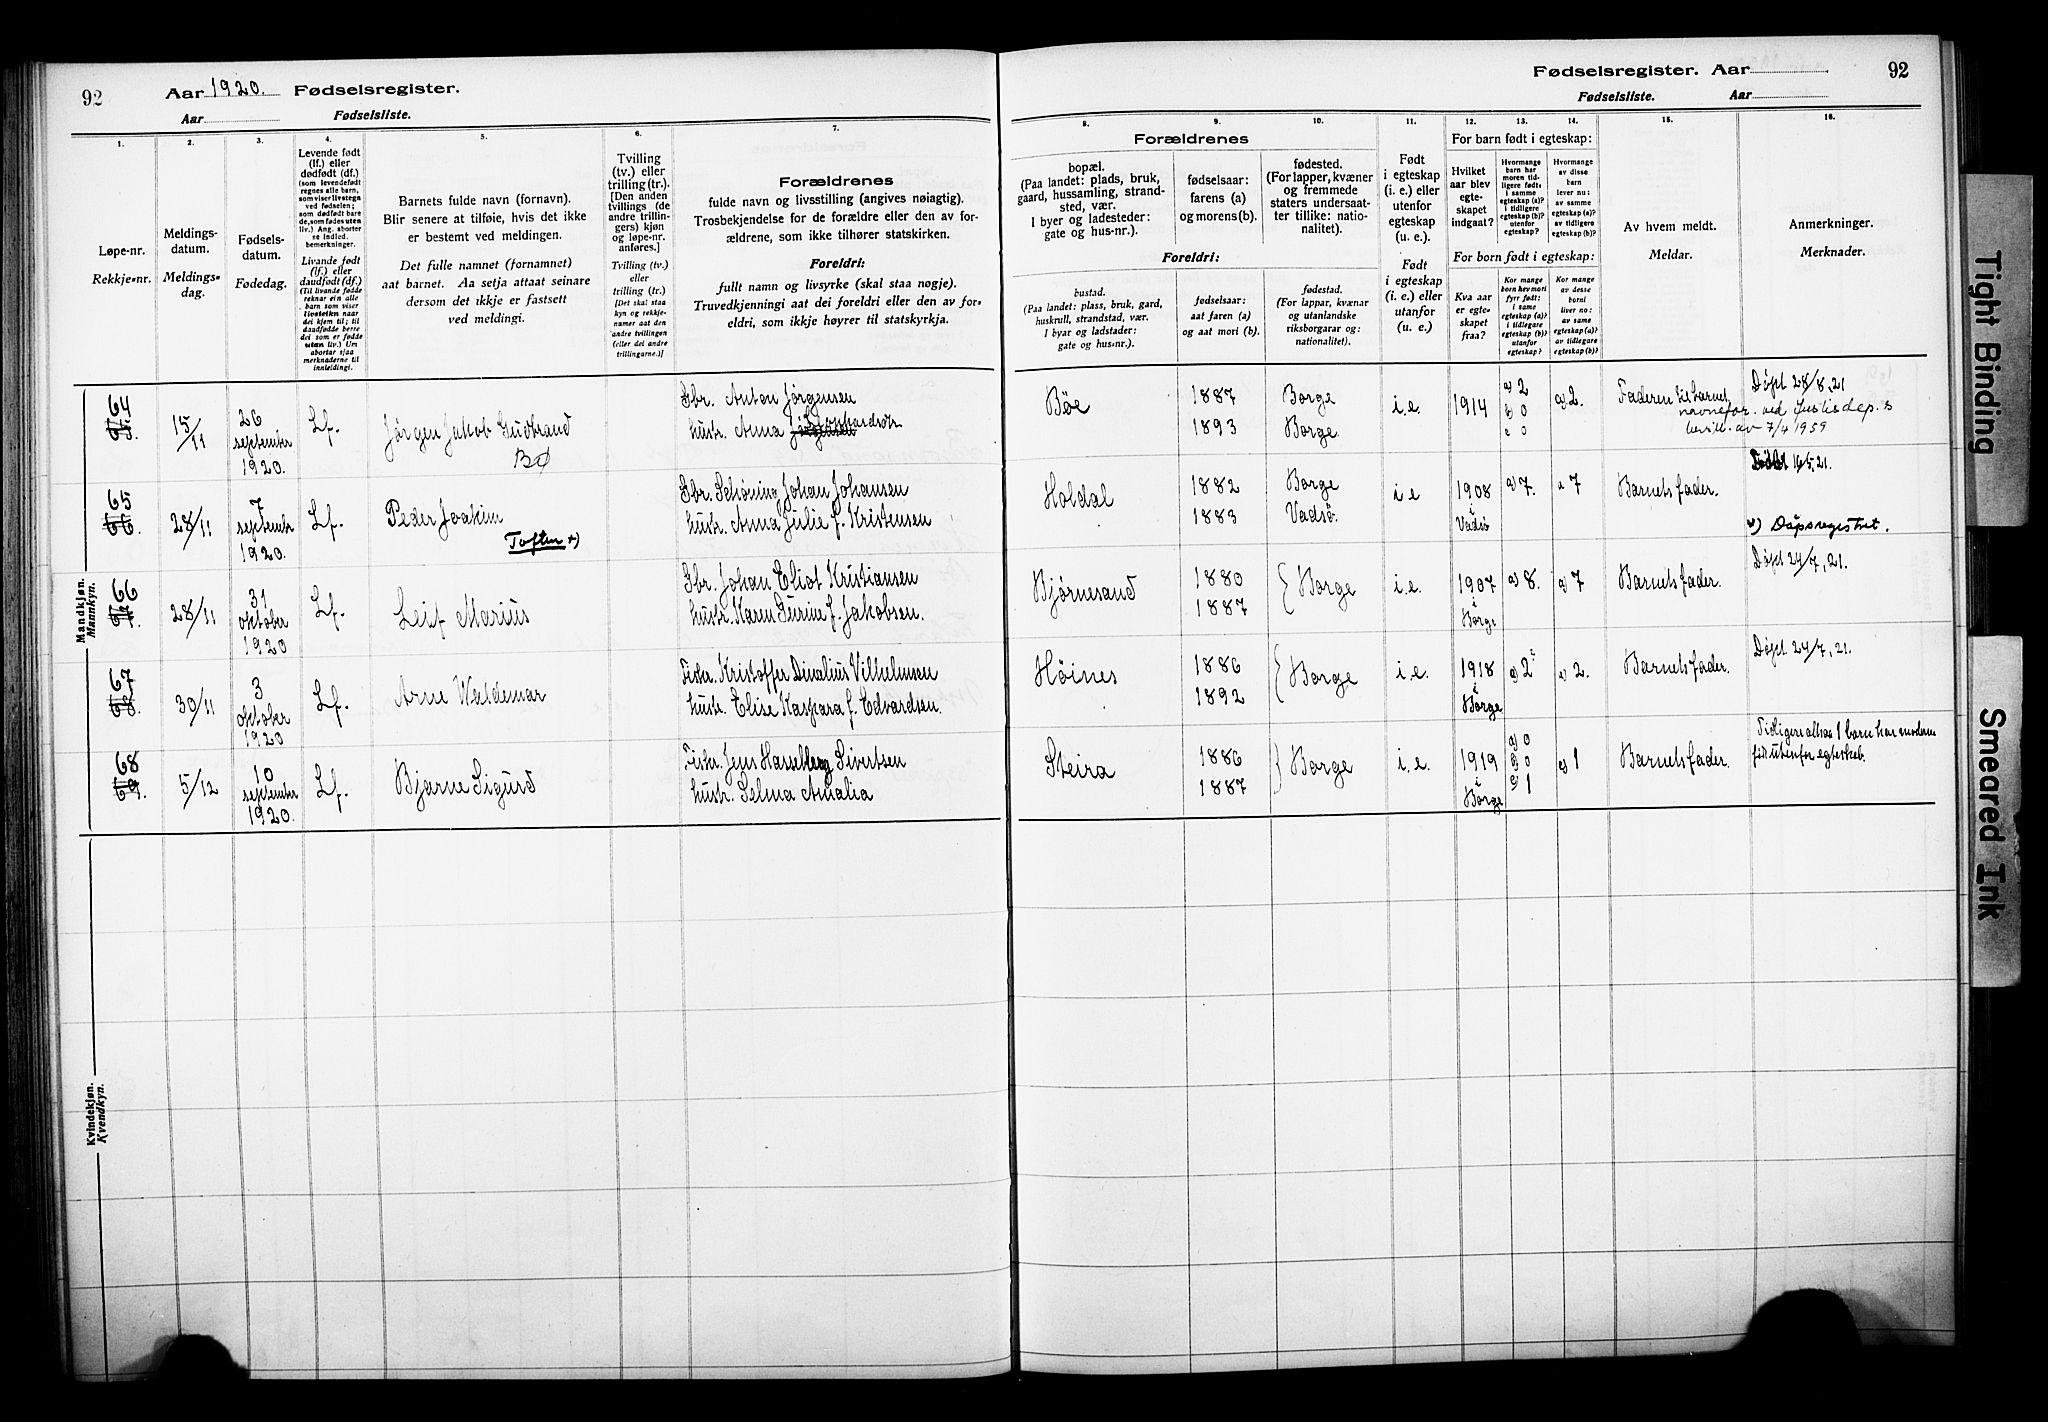 92
Aar 1920. Fødselsregister.
Aar Fødselsliste.
Fødselsregister. Aar
92
Fødselsliste. Aar
1.
Løpe-nr.
Rekkje-nr.
2.
Meldings-
datum.
Meldings-
dag.
3.
Fødsels-
datum.
Fødedag.
4.
Levende født
(lf.) eller
dødfødt (df.)
(som levendefødt
regnes alle barn,
som viser livstegn
ved fødselen;
som dødfødt bare
de, som fødes uten
liv.) Ang. aborter
se indled.
bemerkninger.
Livande født
(lf.) eller
daudfødt (df.)
(Til livande fødde
reknar ein alle
born som viser
livsteikn naar
dei kjem til; til
daudfødde berre
dei som er fødde
utan liv.) Um
abortar sjaa
merknaderne til
innleidingi.
5.
Barnets fulde navn (fornavn).
Blir senere at tilføie, hvis det ikke
er bestemt ved meldingen.
Det fulle namnet (fornamnet)
aat barnet. Aa setja attaat seinare
dersom det ikkje er fastsett
ved meldingi.
6.
Tvilling
(tv.) eller
trilling (tr.).
[Den anden
tvillings (de
andre trillin-
gers) kjøn
og løpe-nr.
anføres.]
Tvilling (tv.)
eller
trilling (tr.)
[Det skal staa
kyn og rekkje-
numer aat den
andre tvillingen
(eller dei andre
trillingarne.)]
7.
Forældrenes
fulde navn og livsstilling (angives nøiagtig).
Trosbekjendelse for de forældre eller den av for-
ældrene, som ikke tilhører statskirken.
Foreldri:
fullt namn og livsyrke (skal staa nøgje).
Truvedkjenningi aat dei foreldri eller den av for-
eldri, som ikkje høyrer til statskyrkja.
8.
Forældrenes
bopæl.
(Paa landet: plads, bruk,
gaard, hussamling, strand-
sted, vær.
I byer og ladesteder:
gate og hus-nr.).
Foreldri:
bustad.
(Paa landet: plass, bruk, gard,
huskrull, strandstad, vær.
I byar og ladstader:
gate og hus-nr.).
9.
fødselsaar:
farens (a)
og morens (b).
fødselsaar:
aat faren (a)
og aat mori (b).
10.
fødested.
(For lapper, kvæner
og fremmede
staters undersaat-
ter tillike: natio-
nalitet).
fødestad.
(For lappar, kvænar
og utanlandske
riksborgarar og:
nationalitet).
11.
Født
i egteskap
(i. e.) eller
utenfor
egteskap
(u. e.).
Født
i egteskap
(i. e.) eller
utanfor
(u. e.)
For barn født i egteskap:
12.
Hvilket
aar blev
egte-
skapet
indgaat?
13.
Hvormange
barn har
moren tid-
ligere født:
i samme
egteskap (a)?
i tidligere
egteskap (b)?
utenfor
egteskap?
14.
Hvormange
av disse
barn
lever nu:
av samme
egteskap (a)?
av tidligere
egteskap (b)?
For born født i egteskap:
Kva aar
er egte-
skapet
fraa?
Kor mange
born hev mori
fyrr født:
i same
egteskap (a)?
i tidlegare
egteskap (b)?
utanfor
egteskap?
Kor mange
av desse
borni
liver no:
av same
egteskap (a)?
av tidlegare
egteskap (b)?
15.
Av hvem meldt.
Meldar.
16.
Anmerkninger.
Merknader.
Mandkjøn.
Mannkyn.
64
15/11
26
september
1920.
Lf.
Jørgen Jakob Gudbrand
Bø
Gbr. Anton Jørgensen
hustr. Anna
Bøe
1887
1893
Borge
Borge
i.e.
1914
a) 2
b) 0
c 0
a) 2.
Faderen til barnet
Døpt 28/8, 21
navnefor. ved Justisdep.s
bevill. av 7/4 1959
65
28/11
7
september
1920.
Lf.
Peder Joakim
Toften x)
Gbr. Schöning Johan Johansen
hustr. Anna Julie f. Kristensen
Holdal
1882
1883
Borge
Vadsö.
i e
1908
i
Vadsö
a) 7.
a 7
Barnets fader.
16/5, 21.
x) Dåpsregistret.
66
28/11
31
oktober
1920
Lf.
Leif Marius
Gbr. Johan Eliot Kristiansen
hustr. Karen Gurine f. Jakobsen.
Bjørnesand
1880
1887
Borge
i.e.
1907
i
Borge
a) 8.
a) 7
Barnets fader.
Døpt 24/7, 21.
67
30/11
3
oktober
1920
Lf.
Arne Waldemar
Fisker. Kristoffer Dinelius Vilhelmsen
hustr. Elise Kaspara f. Edvardsen.
Höines
1886
1892
Borge
i.e.
1918
i
Borge
a) 2
a) 2.
Barnets fader.
Døpt 24/7, 21.
68
5/12
10
september
1920.
Lf.
Bjarne Sigurd
Fisker. Jens Hasselberg Sivertsen
hustr. Selma Amalia
Steira
1886
1887
Borge
i. e.
1919
i
Borge
a) 0
b) 0
c) 1
c) 1
Barnets fader.
Tidligere altsaa 1 barn har moderen
født utenfor egteskab.
Kvindekjøn.
Kvendkyn.
Tight Binding
Smeared Ink